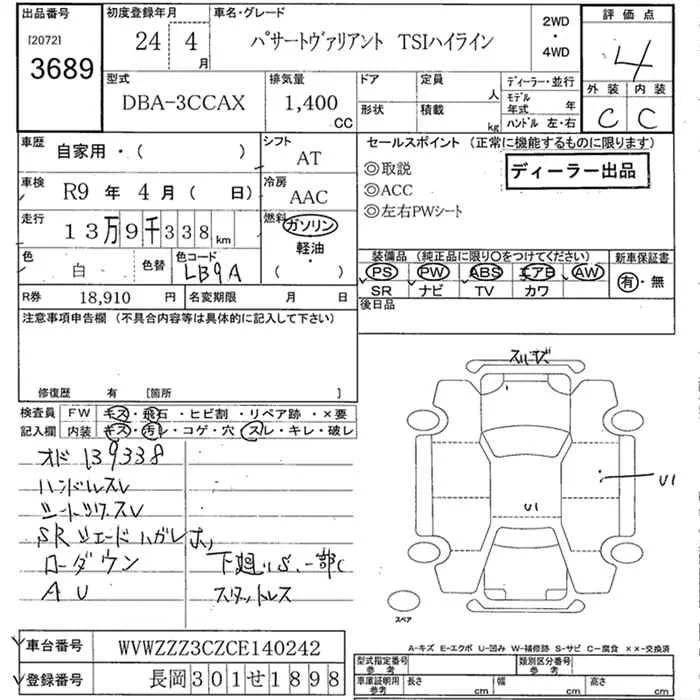 出品番号 初度登録年月 車名・グレード 2WD・4WD 評価点
[2072] 24年 4月 パサートヴァリアント TSIハイライン 4
3689
型式 排気量 ドア 定員 人 ディーラー・並行 外装 内装
DBA-3CCAX 1,400 CC 形状 積載 kg モデル年式 年 C C
ハンドル 左・右
車歴 自家用・( ) シフト AT セールスポイント (正常に機能するものに限ります)
◎取説 ディーラー出品
車検 R9 年 4 月 ( 日) 冷房 AAC ◎ACC
◎左右PWシート
走行 13万9千338 km 燃料 ガソリン・軽油・( )
色 白 色替 色コード LB9A 装備品 (純正品に限り○をつけてください) 新車保証書
PS PW ABS エアB AW 有・無
SR ナビ TV カワ
R券 18,910 円 名変期限 月 日 後日品
注意事項申告欄 (不具合内容等は具体的に記入して下さい)
修復歴 有 [箇所 ]
検査員 FW キズ・飛石・ヒビ割・リペア跡・×要
記入欄 内装 キズ・汚レ・コゲ・穴・スレ・キレ・破レ
オド 139338
ハンドルスレ
シートワクスレ
SRシェードハガレ
ローダウン 下廻りS、一部C
AU スタットレス
スルキズ
U1
U1
スペア
A-キズ E-エクボ U-凹み W-補修跡 S-サビ C-腐食 ××-交換済
車台番号 WVWZZZ3CZCE140242
登録番号 長岡301せ1898
型式指定番号 参考 類別区分番号 参考
車庫証明用 参考 長さ cm 幅 cm 高さ cm